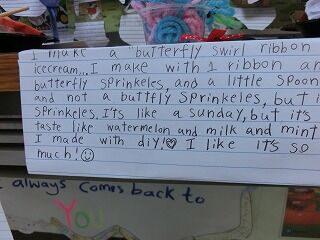 I make a "butterfly swirl ribbon
icecream... I make with 1 ribbon an
butterfly sprinkeles, and a little spoon
and not a buttfly sprinkeles, but
sprinkeles. Its like a sunday, but its
taste like watermelon and milk and mint
I made with diY!♡ I like its so
much!☺
always comes back to
YOU